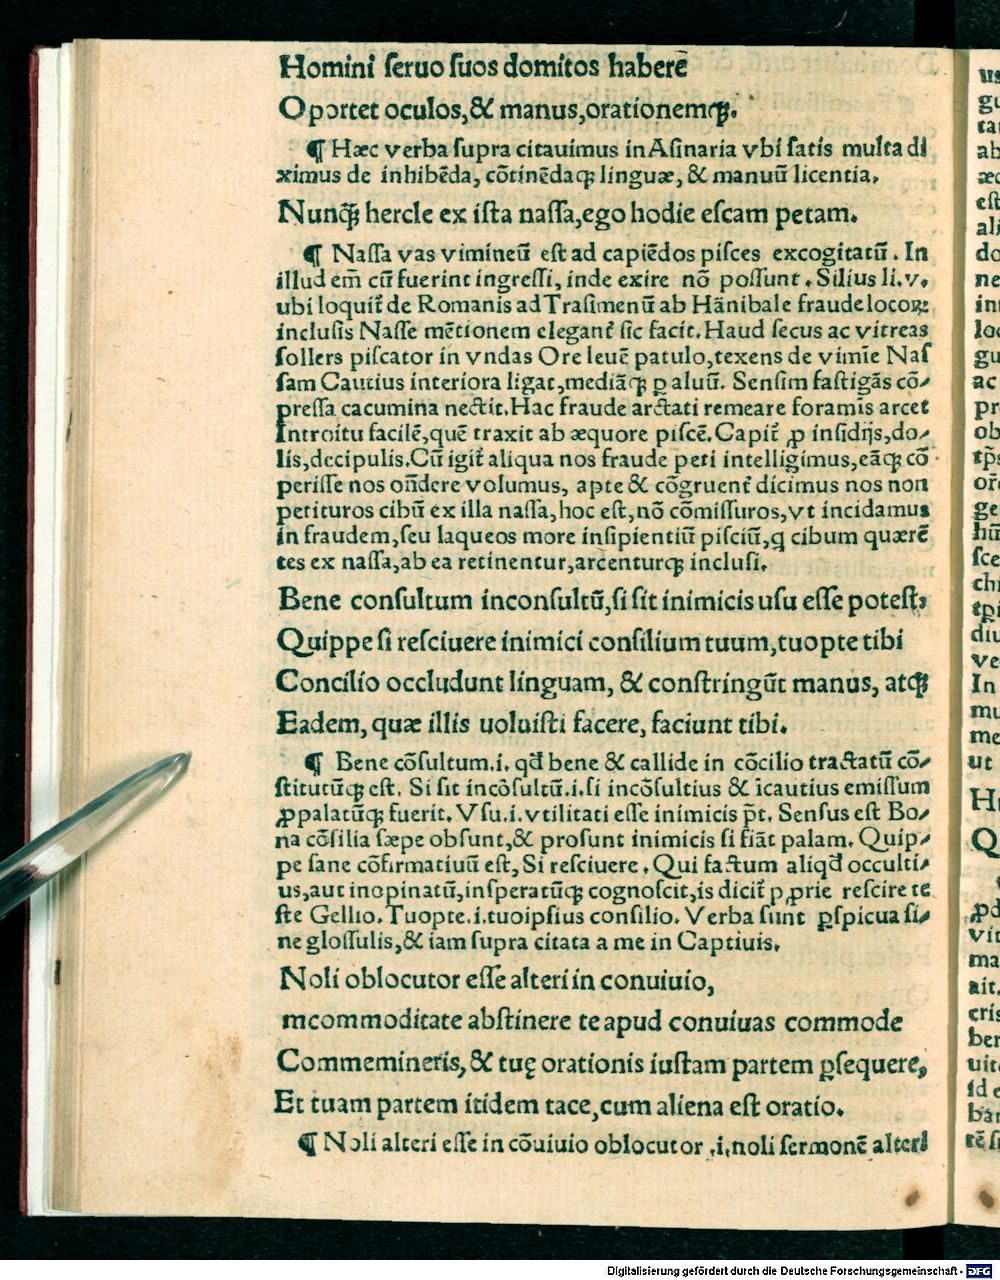 Homini seruo suos domitos haberē
Oportet oculos,& manus,orationemqꝫ.
¶ Hæc verba supra citauimus in Asinaria vbi satis multa di
ximus de inhibēda, cōtinēdaqꝫ linguæ, & manuū licentia.
Nunqꝫ hercle ex ista nassa,ego hodie escam petam.
¶ Nassa vas vimineū est ad capiēdos pisces excogitatū. In
illud em̄ cū fuerint ingressi, inde exire nō possunt. Silius li.v.
ubi loquit̄ de Romanis ad Trasimenū ab Hānibale fraude locoꝝ
inclusis Nasse mētionem elegant̄ sic facit. Haud secus ac vitreas
sollers piscator in vndas Ore leuē patulo,texens de vimīe Nas
sam Cautius interiora ligat,mediāqꝫ ꝑ aluū. Sensim fastigās cō-
pressa cacumina nectit.Hac fraude arctati remeare foramīs arcet
Introitu facilē,quē traxit ab æquore piscē.Capit̄ ꝓ insidijs,do-
lis,decipulis.Cū igit̄ aliqua nos fraude peti intelligimus,eāqꝫ cō
perisse nos on̄dere volumus, apte & cōgruent̄ dicimus nos non
petituros cibū ex illa nassa,hoc est,nō cōmissuros,vt incidamus
in fraudem,seu laqueos more insipientiū pisciū,q cibum quærē
tes ex nassa,ab ea retinentur,arcenturqꝫ inclusi.
Bene consultum inconsultū,si sit inimicis usu esse potest,
Quippe si resciuere inimici consilium tuum,tuopte tibi
Concilio occludunt linguam, & constringūt manus, atqꝫ
Eadem, quæ illis uoluisti facere, faciunt tibi.
¶ Bene cōsultum.i. qd̄ bene & callide in cōcilio tractatū cō-
stitutūqꝫ est. Si sit incōsultū.i.si incōsultius & īcautius emissum
ꝓpalatūqꝫ fuerit. Vsu.i.vtilitati esse inimicis pt̄. Sensus est Bo-
na cōsilia sæpe obsunt,& prosunt inimicis si fiāt palam. Quip-
pe sane cōfirmatiuū est, Si resciuere. Qui factum aliqd̄ occulti-
us,aut inopinatū,insperatūqꝫ cognoscit,is dicit̄ ꝓprie rescire te
ste Gellio.Tuopte.i.tuoipsius consilio. Verba sunt ꝑspicua si-
ne glossulis,& iam supra citata a me in Captiuis.
Noli oblocutor esse alteri in conuiuio,
mcommoditate abstinere te apud conuiuas commode
Commemineris, & tuę orationis iustam partem ꝑsequere,
Et tuam partem itidem tace,cum aliena est oratio.
¶ Noli alteri esse in cōuiuio oblocutor .i.noli sermonē alteri
Digitalisierung gefördert durch die Deutsche Forschungsgemeinschaft - DFG